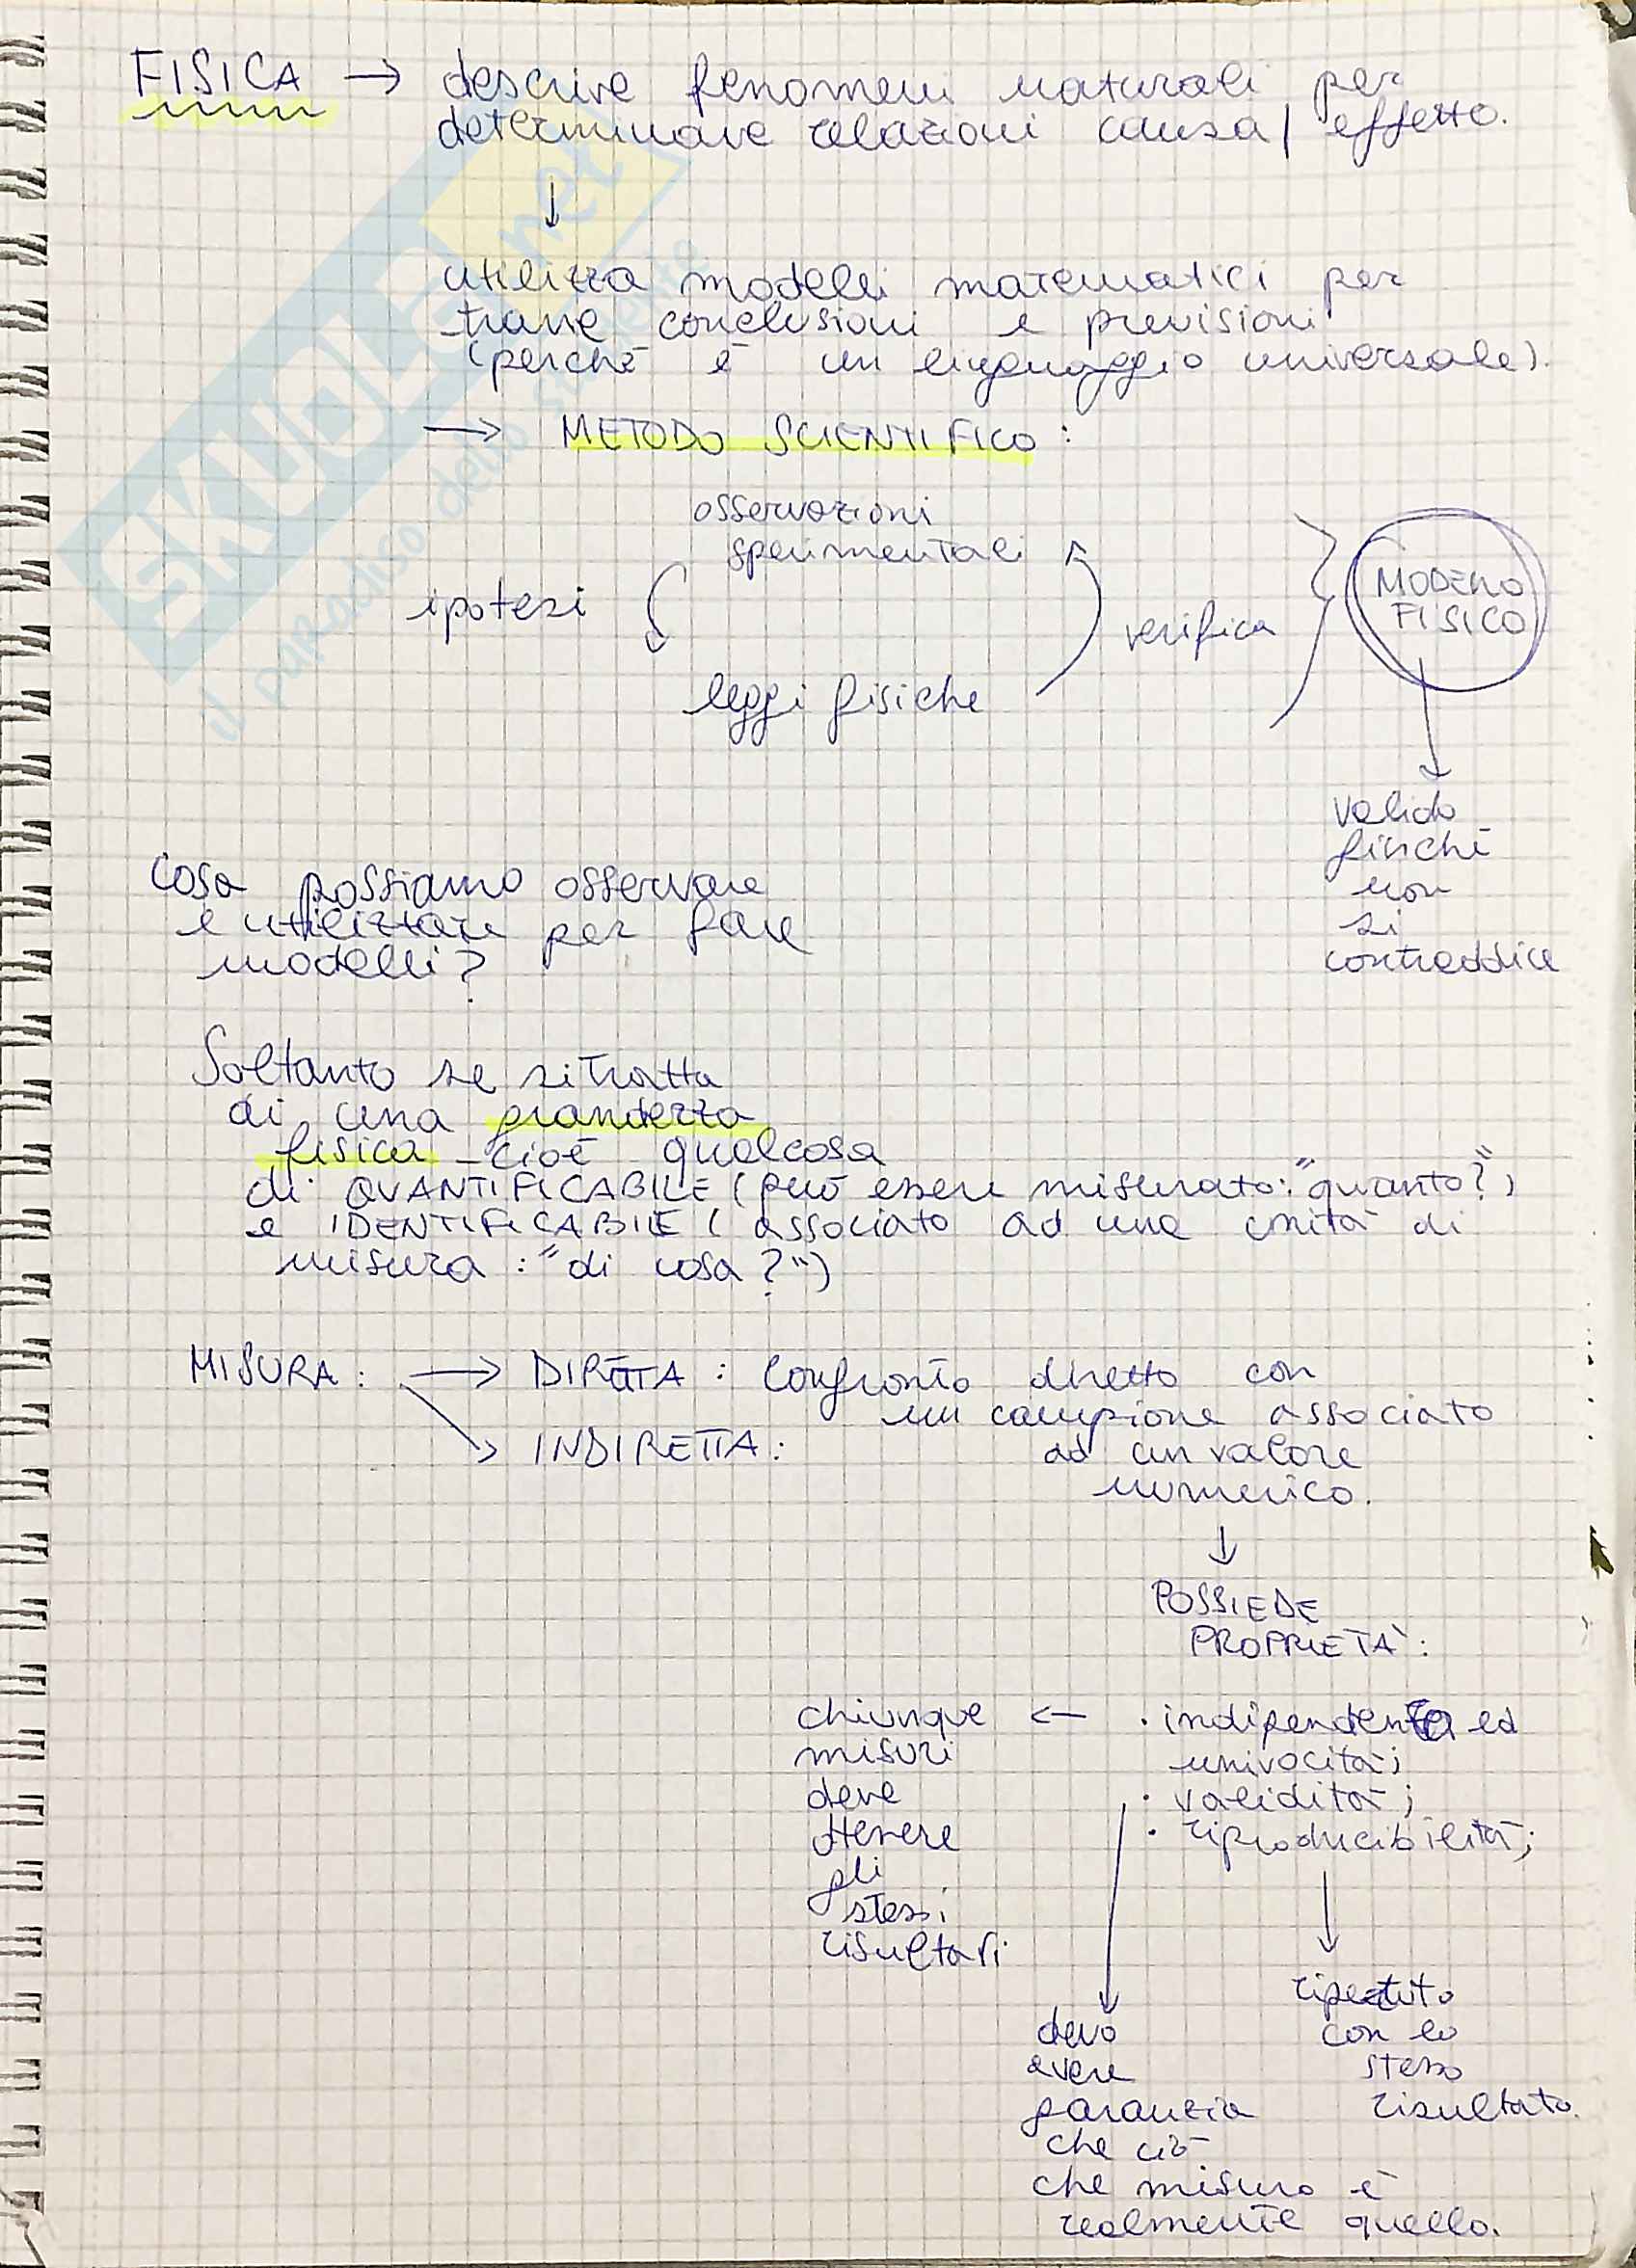 FISICA → descrive fenomeni naturali per
determinare relazioni causa/effetto.
↓
utilizza modelli matematici per
trarre conclusioni e previsioni
(perchè è un linguaggio universale).
→ METODO SCIENTIFICO:
osservazioni
sperimentali
ipotesi
verifica
leggi fisiche
MODELLO
FISICO
valido
finchè
non
si
contraddice
Cosa possiamo osservare
e utilizzare per fare
modelli?
Soltanto se si tratta
di una grandezza
fisica - cioè qualcosa
di QUANTIFICABILE (può essere misurato: "quanto?")
e IDENTIFICABILE (associato ad una unità di
misura: "di cosa?")
MISURA: → DIRETTA: Confronto diretto con
un campione associato
ad un valore
numerico.
→ INDIRETTA:
↓
POSSIEDE
PROPRIETÀ:
· indipendenza ed
univocità;
· validità;
· riproducibilità;
←
chiunque
misuri
deve
ottenere
gli
stessi
risultati
devo
avere
garanzia
che ciò
che misuro è
realmente quello.
ripetuto
con lo
stesso
risultato.
SKUOLA.net
il paradiso dello studente